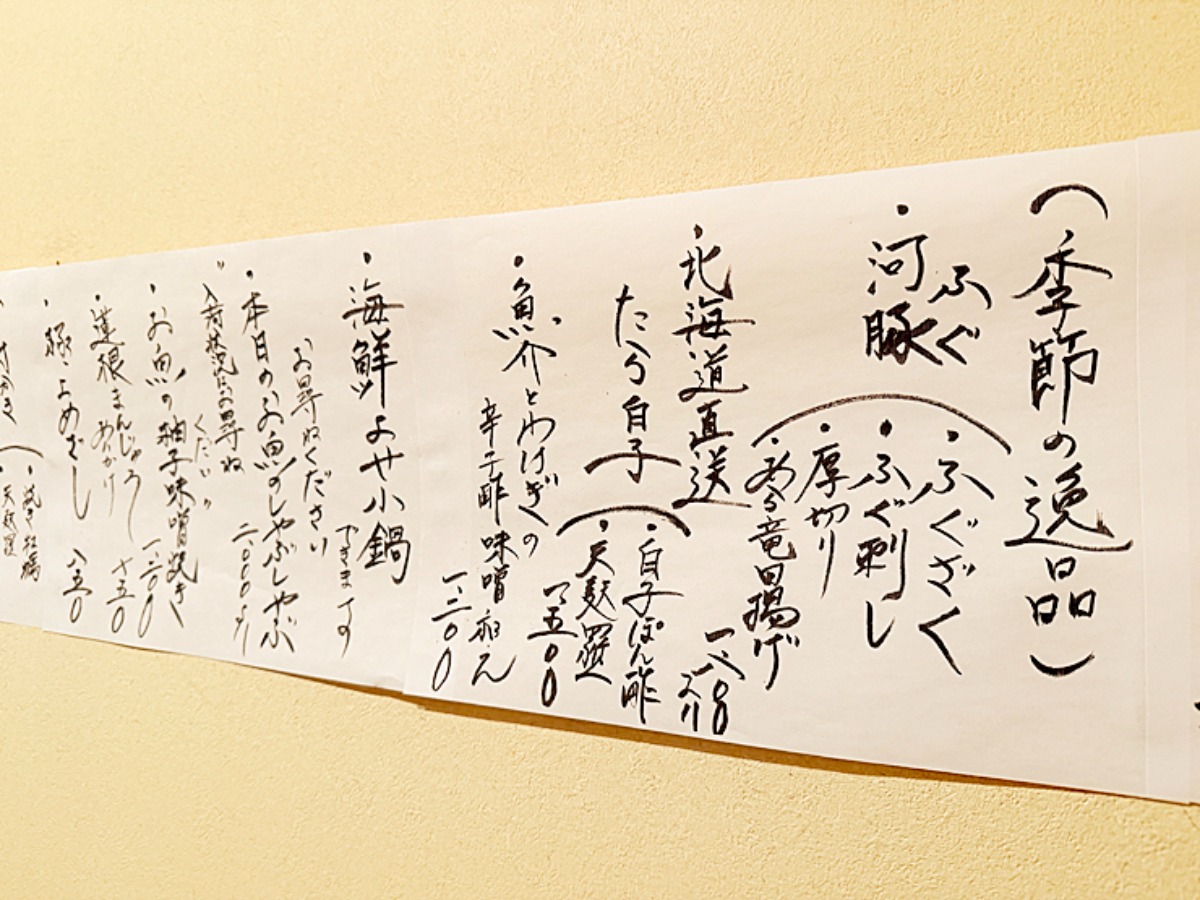 (季節の逸品)
ふぐ
・河豚
・ふぐざく
・ふぐ刺し
・厚切り
・あら竜田揚げ
一、八〇〇より
・北海道直送
たら白子
・白子ぽん酢
・天麩羅
一、五〇〇
・魚介とわけぎの
辛子酢味噌和え
一、二〇〇
・海鮮よせ小鍋
できます
お尋ねください
・本日のお魚のしゃぶしゃぶ
二、〇〇〇より
"入荷状況はお尋ね
ください"
・お魚の柚子味噌焼き
一、二〇〇
・蓮根まんじゅう
あんかけ
七五〇
八五〇